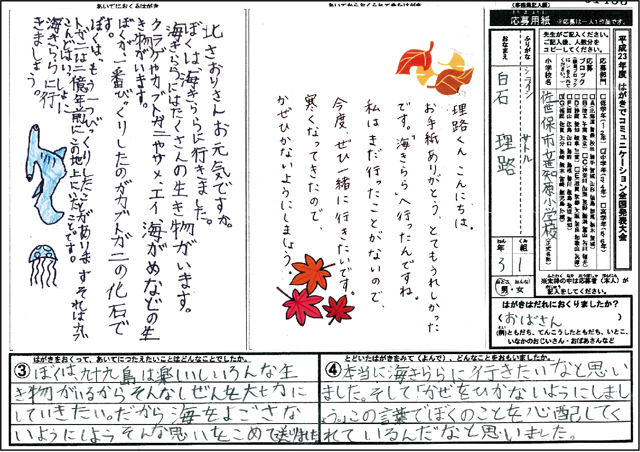 あいてにおくるはがき
北さおりさんお元気ですか。
ぼくは海きららに行きました。
海きららにはたくさんの生き物がいます。
クラゲやカブトガニやサメ・エイ海がめなどの生
き物がいます。
ぼくが一番びっくりしたのがカブトガニの化石で
す。
ぼくは、もう一つびっくりしたことがありますそれはカブ
トガニは二億年前にこの地上にいたことです。
こんどはいっしょに
海きららに行
きましょう
理路くん、こんにちは。
お手紙ありがとう。とてもうれしかった
です。海きららへ行ったんですね。
私はまだ行ったことがないので、
今度、ぜひ一緒に行きたいです。
寒くなってきたので
かぜひかないようにしましょう。
平成23年度 はがきでコミュニケーション全国発表大会
応募用紙
※応募は一人1作品です。
先生がご記入ください。
ご記入後、人数分を
コピーしてください。
応募部門
応募ブロック
小学校名
佐世保市立知原小学校
ふりがな
シライシ
サトル
おなまえ
白石
理路
年
3
組
1
男・女
※太枠の中は応募者(本人)が
記入をしてください。
はがきはだれにおくりましたか？
(おばさん)
(例)ともだち、てんこうしたともだち、いとこ、
いなかのおじいさん・おばあさんなど
はがきをおくって、あいてにつたえたいことはどんなことでしたか。
③ぼくは、九十九島は楽しいしいろんな生
き物がいるからそんなしぜんを大切に
していきたい。だから海をよごさな
いようにしようそんな思いをこめて送りました
とどいたはがきをみて(よんで)、どんなことをおもいましたか。
④本当に海きららに行きたいなと思い
ました。そして「かぜをひかないようにしまし
ょう。」この言葉でぼくのことを心配してく
れているんだなと思いました。